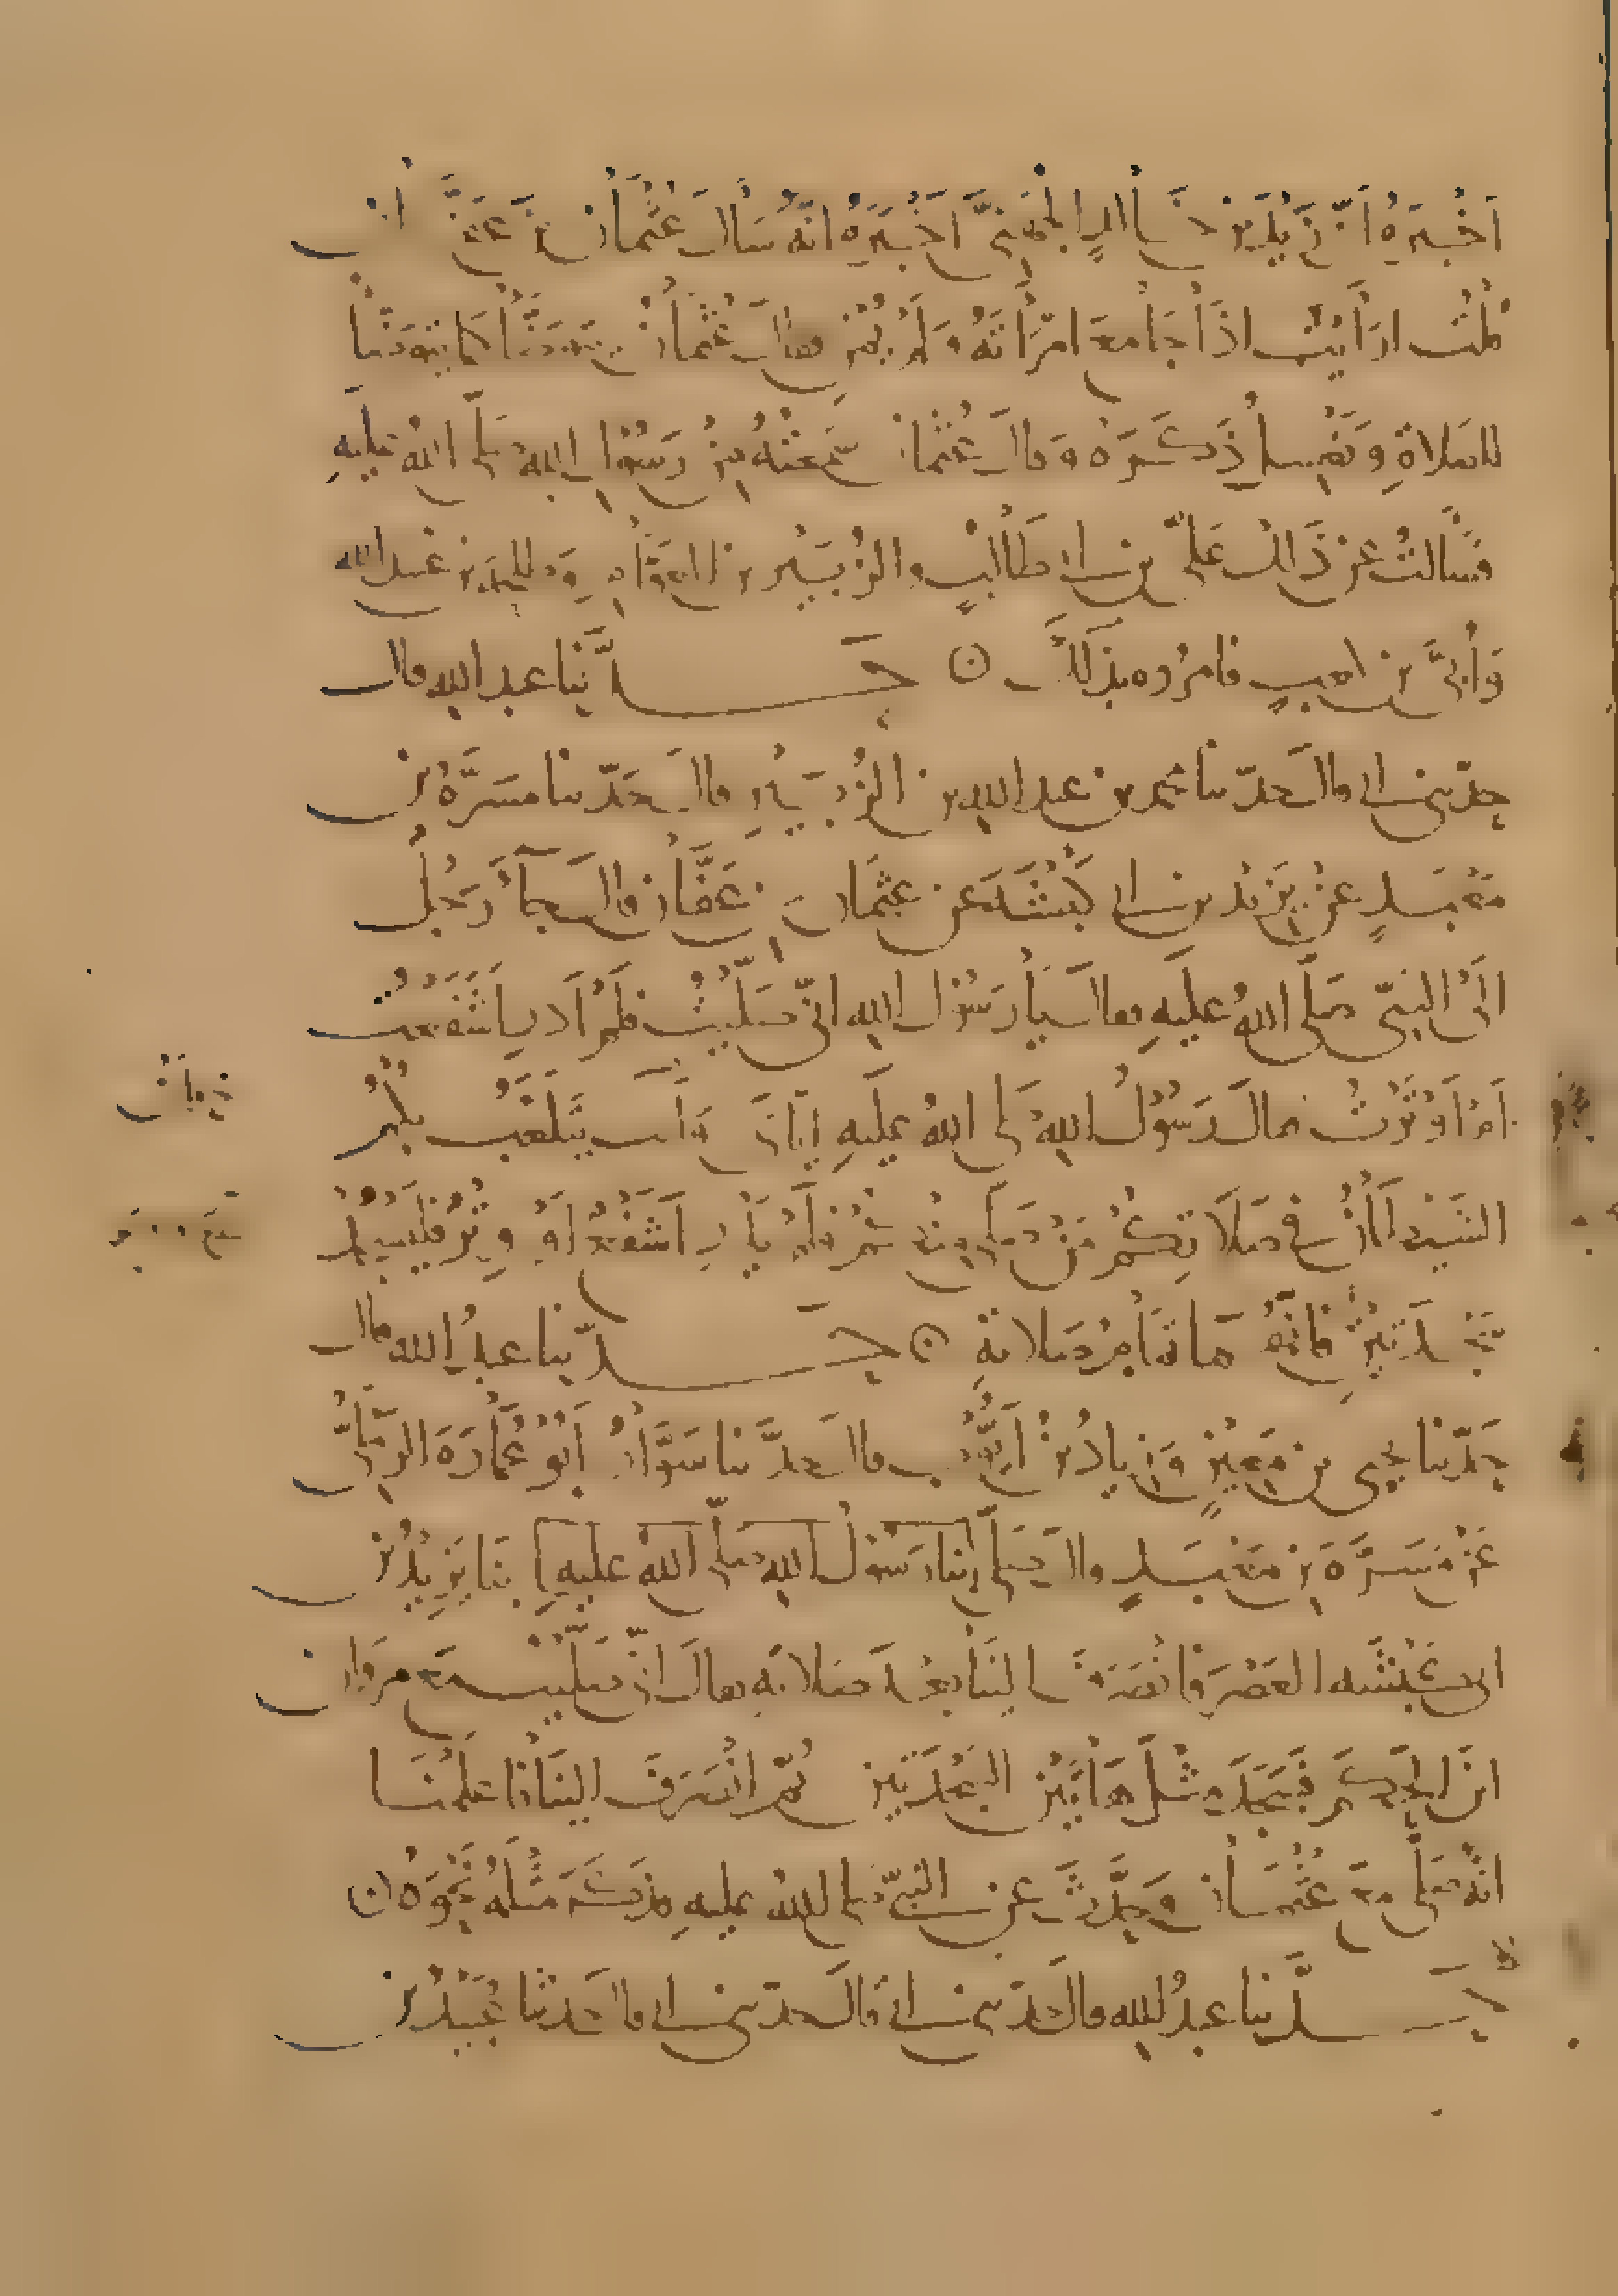 اَخْبَرَهُ اَنَّ زَيْدَ بن خَالِدٍ الجُهَنِيَّ اَخْبَرَهُ اَنَّهُ سَاَلَ عُثْمَانَ بنَ عَفَّانَ
قُلْتُ ارَاَيْتَ اذَا جَامَعَ امْرَاَتَهُ وَلَمْ يُمْنِ فقالَ عُثْمَانُ يَتَوَضَّأُ كَمَا يَتَوَضَّأُ
للصَلاةِ وَيَغْسِلُ ذَكَرَهُ وَقالَ عُثْمَانُ سَمِعْتُهُ مِنْ رَسُوْلِ اللهِ صَلَّى اللهُ عَليهِ
فسَاَلتُ عن ذَالكَ عَلىَّ بن ابى طَالبٍ والزُبَيْرِ بن العَوَّامِ وَطلحةَ بن عُبيدالله
وَاُبَىَّ بن كعبٍ فامَرُوه بذَلكَ ۞ حَدَّثنا عبد اللهِ قال
حدّثنى ابى قال حدّثنا محمد بن عبد اللهِ بن الزُبَيْرِ قالَ حَدّثنا مسَرَّةُ بن
مَعْبَدٍ عنْ يَزِيْدَ بن ابى كَبْشَةَ عن عُثمانَ بنِ عَفَّانَ قالَ جَآءَ رَجُلٌ
الَى النبىّ صَلَّى اللهُ عليَهِ فقالَ يَا رَسُوْلَ اللهِ انّى صَلَّيْتُ فلَمْ اَدرِ اَشَفَعْتُ
اَمْ اَوْتَرْتُ فقالَ رَسُوْلُ اللهِ صَلى اللهُ عليَهِ ايّاىَ وَاَن يَتَلَعَّبَ بكُمُ
الشَيْطَانُ فى صَلَاتِكُمْ مَنْ صَلَّى مِنْكُمْ فلَمْ يَدْرِ اَشَفَعَ اَوْ وِتْرٌ فليَسجُدْ
سَجْدَتَيْنِ فانَّهُمَا تَمَامُ صَلاتهِ ۞ حَدّثنا عبدُ الله قال
حَدّثنا يحيى بن مَعِيْنٍ وَزِيادُ بنُ اَيُّوْبَ قالَ حدَّثنا سَوَّارٌ اَبُوْ عُمَارَةَ الرَمْلىُّ
عَنْ مَسَرَّةَ بنِ مَعْبَدٍ قالَ صَلَّى بنا يَزِيْدُ بن
ابى كَبْشَه العَصْرَ فانْصَرَفَ الينَا بعْدَ صَلاتهِ فقالَ انّى صَلّيْتُ مَعَ مرْوَان
ابنِ الحَكَمِ فَسَجَدَ مثْلَ هَاتَيْنِ السَجْدَتَيْنِ ثُمّ انْصَرَفَ الينَا فاَعلَمَنَا
اَنّهُ صَلَّى مَعَ عُثْمَانَ وَحَدَّثَ عن النبىّ صَلى اللهُ عليهِ فذَكَرَ مثْلَهُ نَحْوَهُ ۞
حَدّثنا عبدُ الله قال حَدّثنى ابى قالَ حدّثنى ابى قال حَدثنا عُبَيْدُ بن